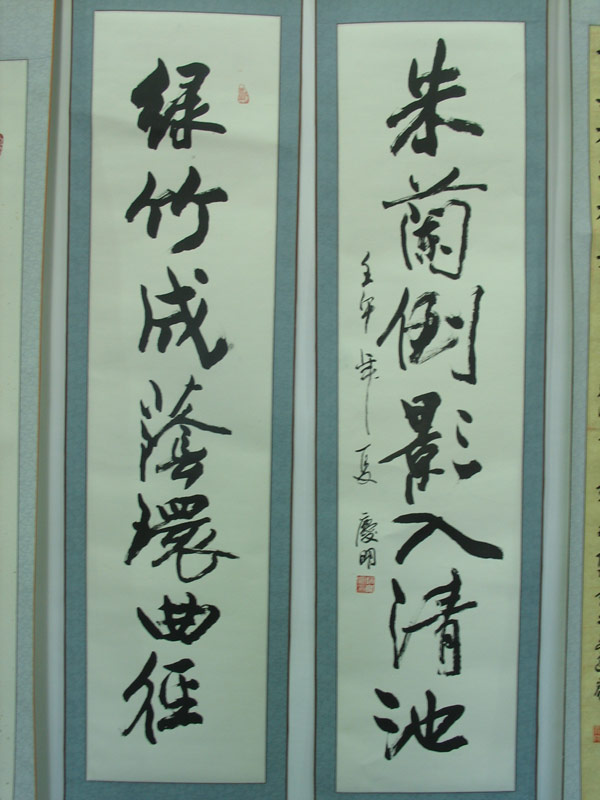 绿竹成蔭環曲徑
朱蘭倒影入清池
壬午年夏 慶明